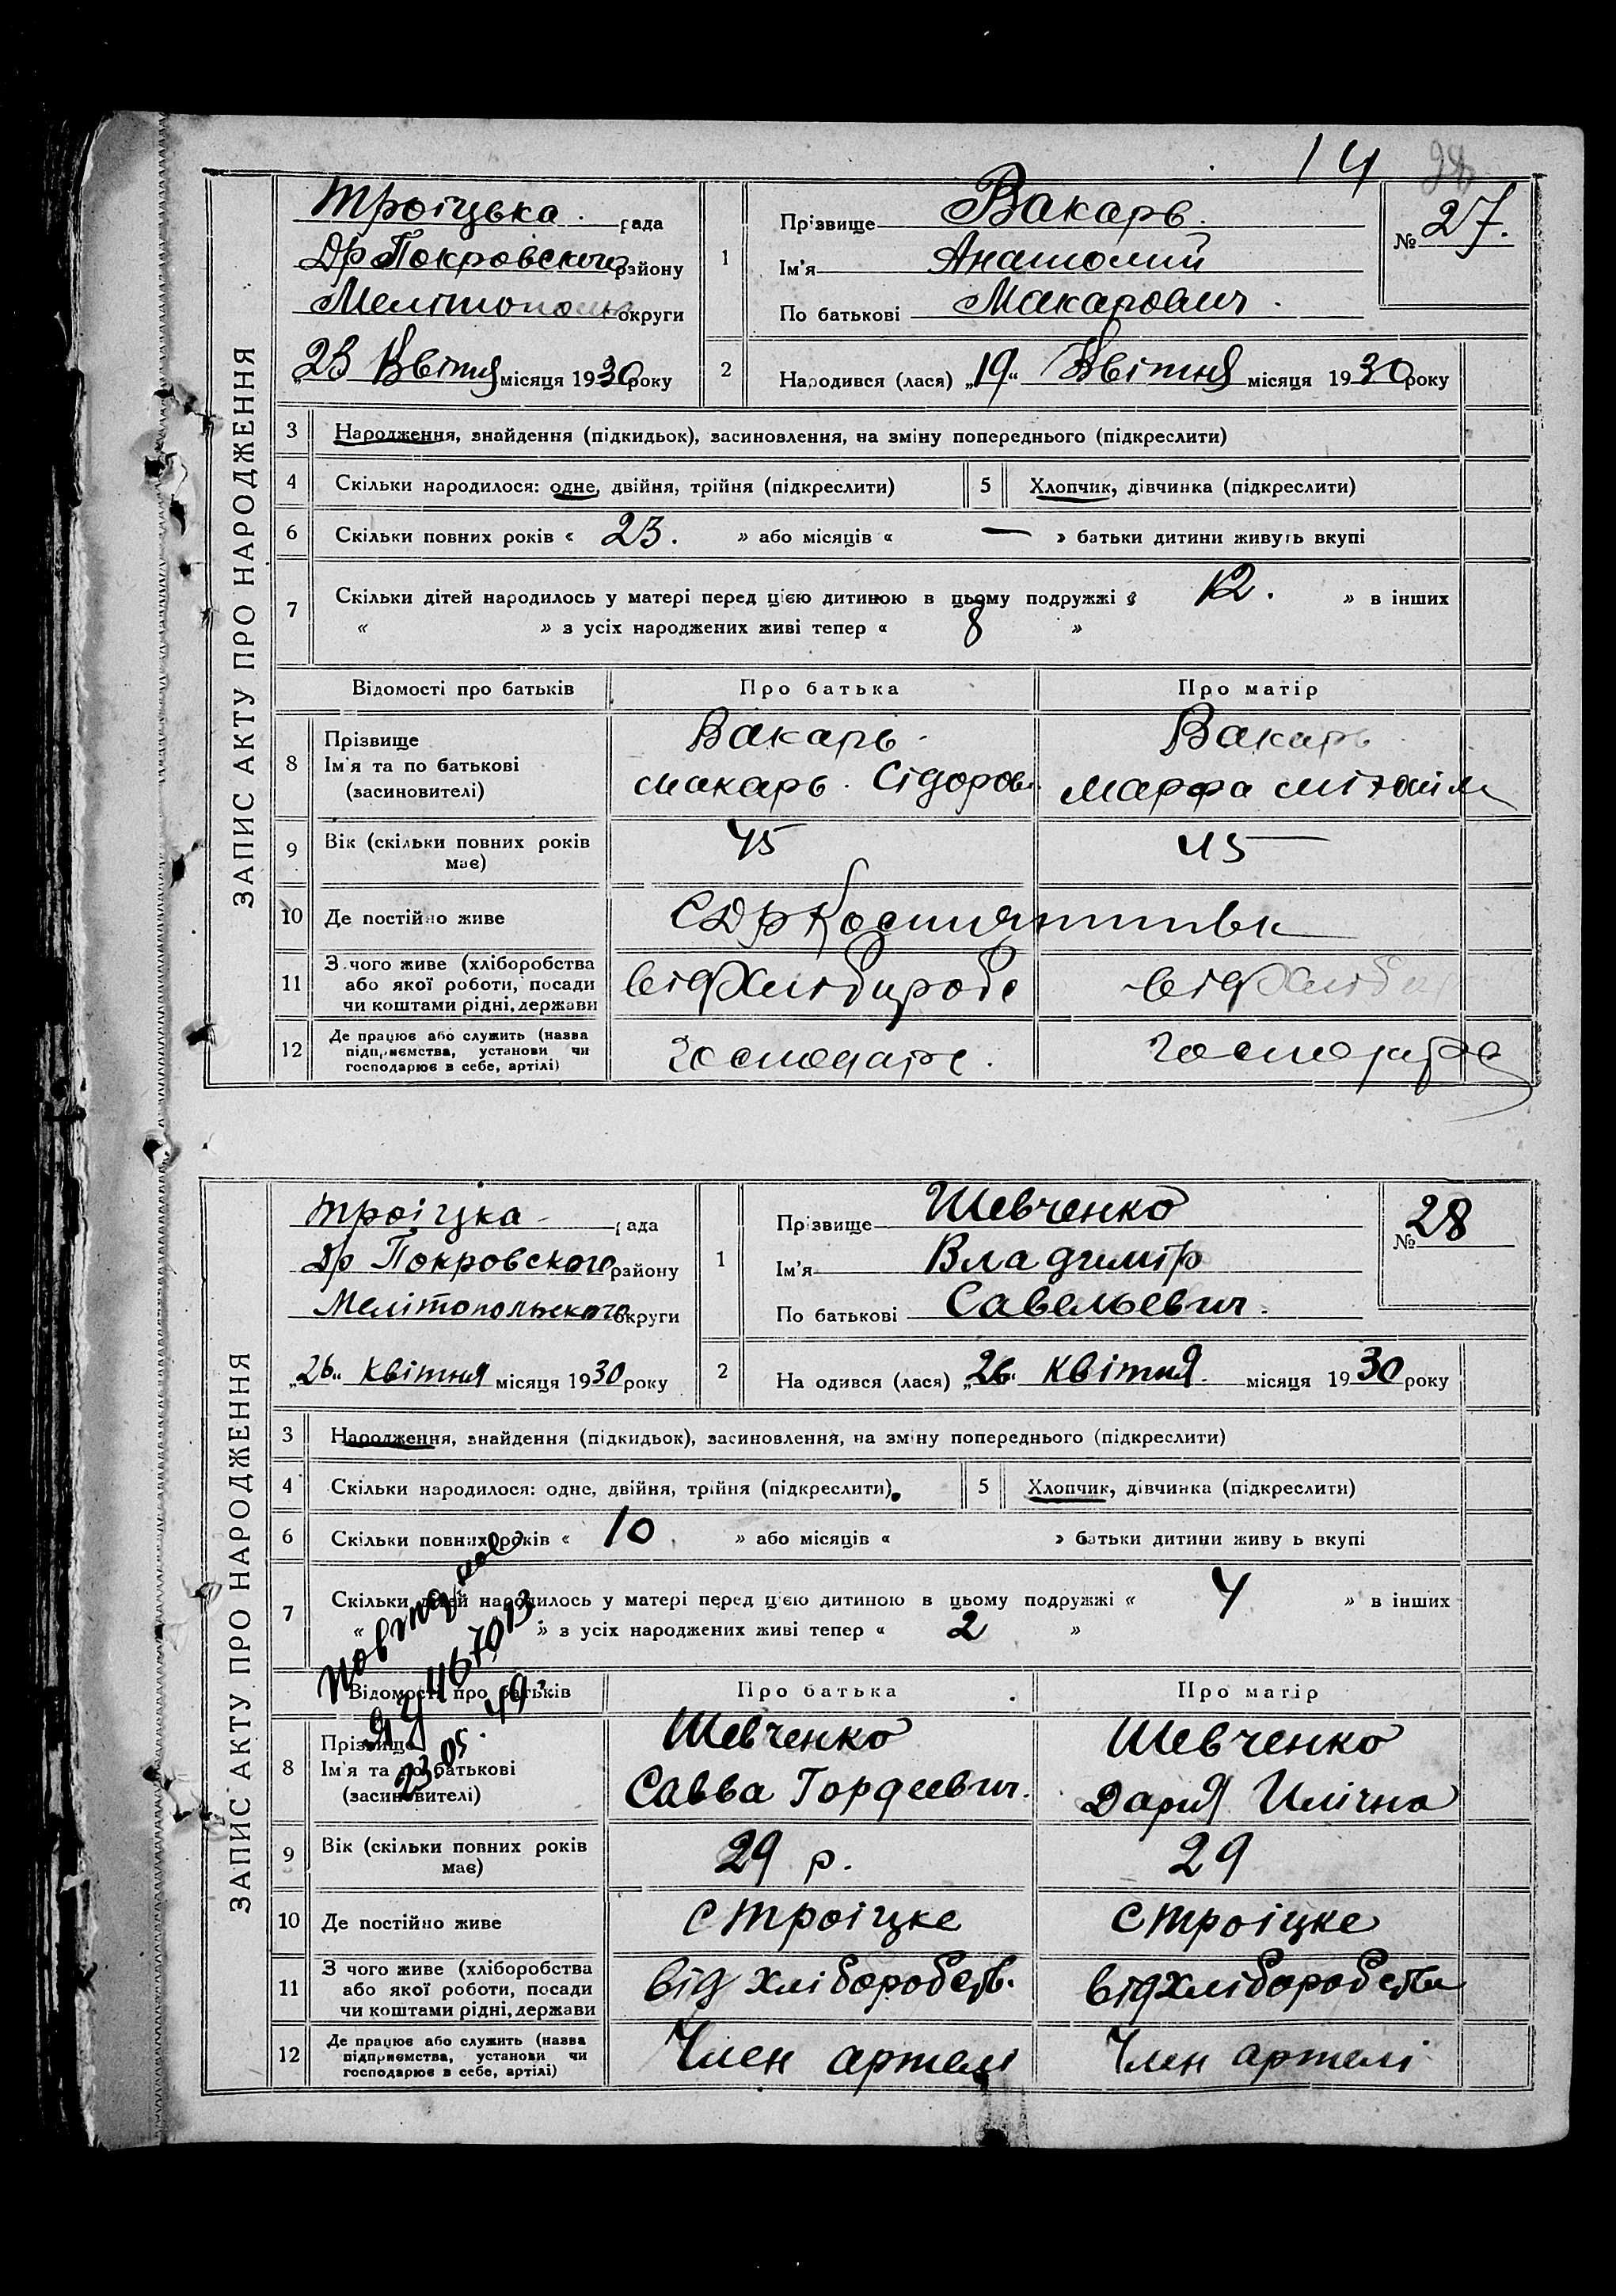 14
ЗАПИС АКТУ ПРО НАРОДЖЕННЯ
Троіцька рада
Др Покровского району
Мелітополь округи
„23 Квітня місяця 1930 року
1
Прізвище Вакарь.
Ім'я Анатолий
По батькові Макарович.
№ 27.
2
Народився (лася) „19“ Квітня місяця 1930 року
3 Народження, знайдення (підкидьок), засиновлення, на зміну попереднього (підкреслити)
4 Скільки народилося: одне, двійня, трійня (підкреслити) 5 Хлопчик, дівчинка (підкреслити)
6 Скільки повних років « 23. » або місяців « — » батьки дитини живуть вкупі
7 Скільки дітей народилось у матері перед цією дитиною в цьому подружжі « 12. » в інших
« » з усіх народжених живі тепер « 8 »
Відомості про батьків Про батька Про матір
8 Прізвище Вакарь. Вакарь
Ім'я та по батькові Макарь. Сідоров. Марфа Міхаіл
(засиновителі)
9 Вік (скільки повних років має) 45 45
10 Де постійно живе
11 З чого живе (хліборобства
або якої роботи, посади
чи коштами рідні, держави
12 Де працює або служить (назва
підприємства, установи чи
господарює в себе, артілі)
ЗАПИС АКТУ ПРО НАРОДЖЕННЯ
Троіцка рада
Др Покровского району
Мелітопольского округи
„26“ Квітня місяця 1930 року
1
Прізвище Шевченко
Ім'я Владимір
По батькові Савельевич.
№ 28
2
На одився (лася) „26“ Квітня. місяця 1930 року
3 Народження, знайдення (підкидьок), засиновлення, на зміну попереднього (підкреслити)
4 Скільки народилося: одне, двійня, трійня (підкреслити). 5 Хлопчик, дівчинка (підкреслити)
6 Скільки повних років « 10 » або місяців « » батьки дитини живу ь вкупі
7 Скільки дітей народилось у матері перед цією дитиною в цьому подружжі « 4 » в інших
« » з усіх народжених живі тепер « 2 »
Відомості про батьків Про батька Про матір
8 Прізвище Шевченко Шевченко
Ім'я та по батькові Савва Гордеевич. Дария Илічна
(засиновителі)
9 Вік (скільки повних років має) 29 р. 29
10 Де постійно живе с Троіцке с Троіцке
11 З чого живе (хліборобства
або якої роботи, посади від хліборобств. від хліборобства
чи коштами рідні, держави
12 Де працює або служить (назва
підприємства, установи чи Член артелі Член артелі
господарює в себе, артілі)